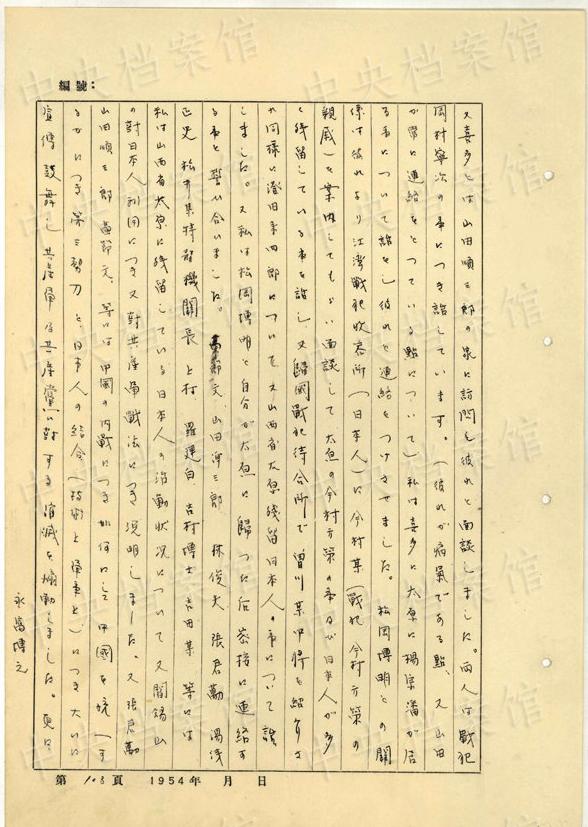 編號：
又喜多とは山田順三郎の家に訪問し彼れと面談しました。両人は戰犯
岡村寧次の事につき話しています。（彼れが病氣である點、又山田
が常に連絡をとつている點について）私は喜多に太原に楊宗藩が居
る事について話をし彼れと連絡をつけさせました。松岡博明との關
係は彼れより江湾戰犯收容所（日本人）に今村某（戰犯今村方策の
親戚）を案内してもらい面談して太原の今村方策の事及び日本人が多
く残留している事を話し又歸國戰犯待合所で曽川某中將を紹介さ
れ同様に澄田𧶛四郎について又山西省太原残留日本人の事について話
しました。又私は松岡博明と自分が太原に歸つた后密接に連絡す
る事を誓い合いました。
山田淳三郎 林俊夫 張君勱 湯浅
正光 松井集特務機關長 上村 羅建白 吉村博士 吉田某 等には
私は山西省太原に残留している日本人の活動狀况について又閻錫山
の對日本人利用につき又對共産軍戰法につき説明しました。又張君勱
山田順三郎 等には中國の内戰につき如何にして中國を統一す
るかにつき第三勢力と日本人の結合（技術と軍事と）につき大いに
宣傳鼓舞し共産軍及共産黨に對する消滅を煽動しました。更に
永富博之
第 103 頁 1954年 月 日
中央档案馆